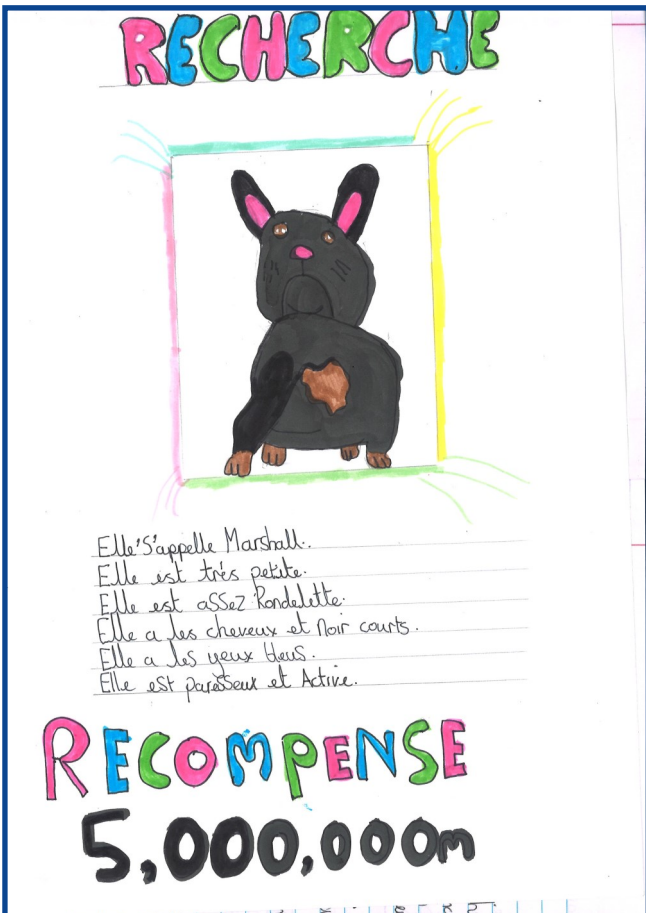 RECHERCHE
Elle'S'appelle Marshall.
Elle est très petite.
Elle est aSSeZ Rondelette.
Elle a les cheveux et Noir courts.
Elle a les yeux bleus.
Elle eST paresseux et Active.
RECOMPENSE
5,000,000m